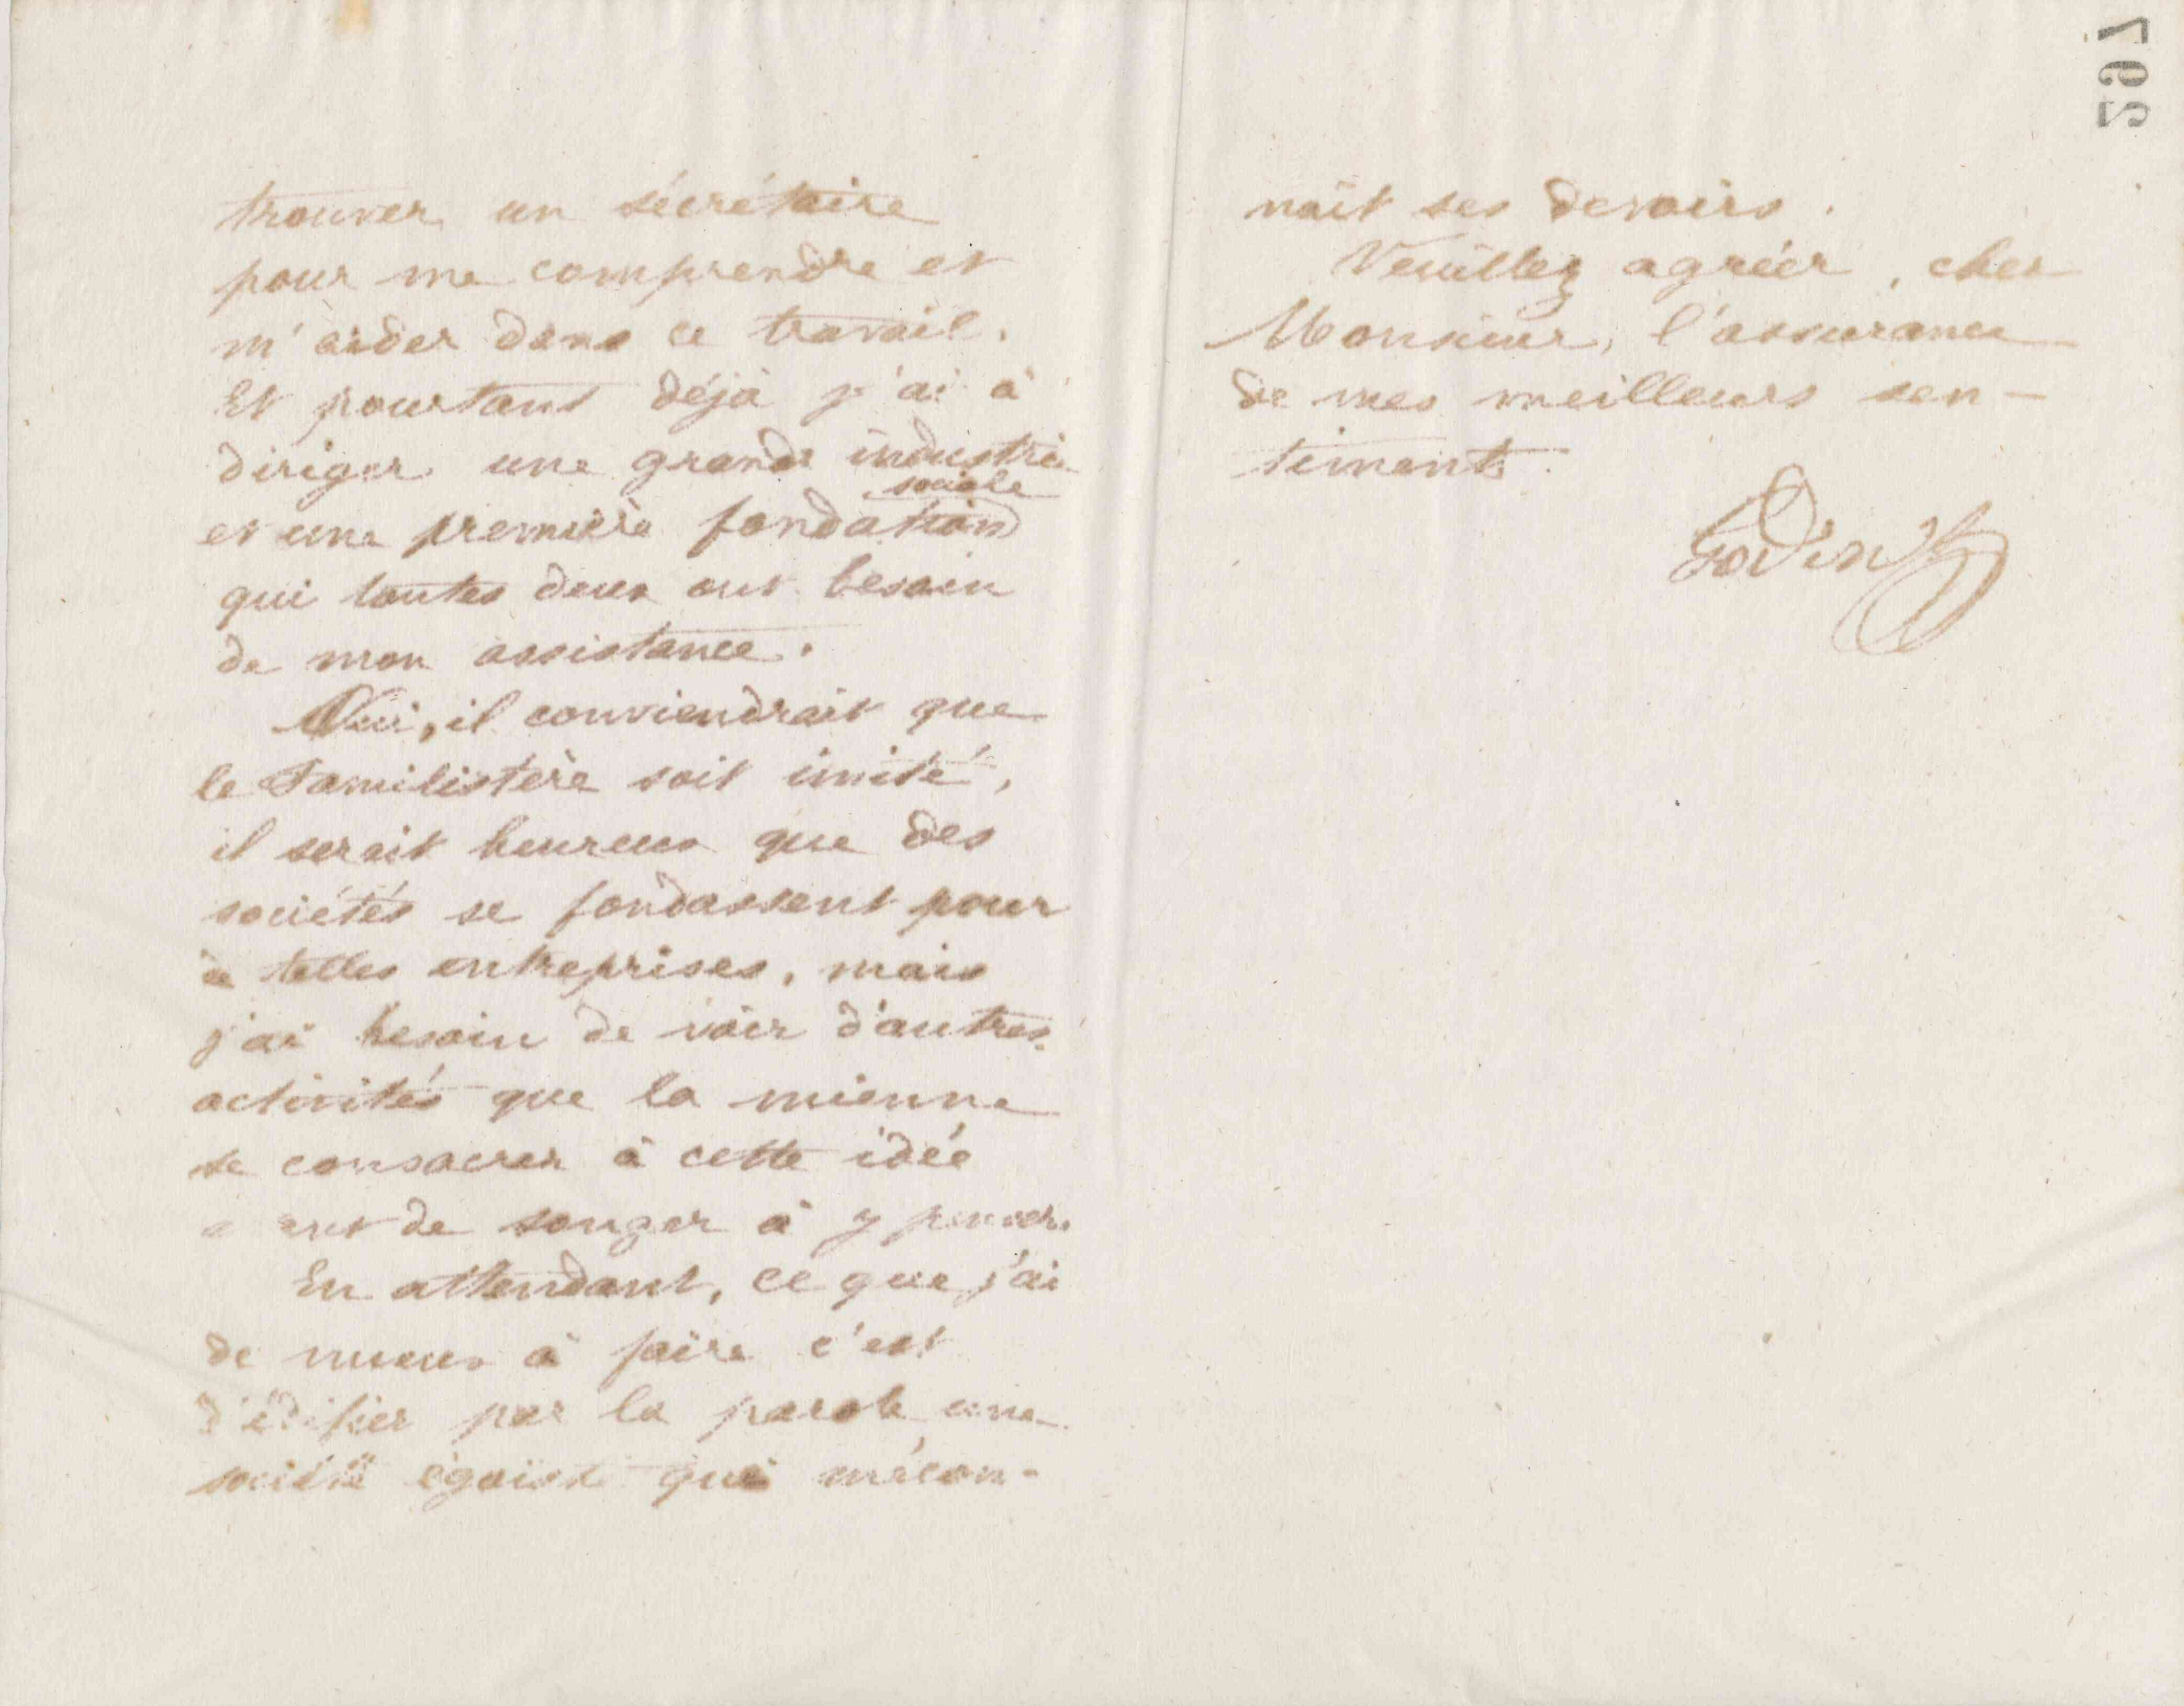 trouver un sécrétaire
pour me comprendre et
m'aider dans ce travail.
Et pourtant déjà j'ai à
diriger une grande industrie
sociale
et une première fondation
qui toutes deux ont besoin
de mon assistance.
Oui, il conviendrait que
le Familistère soit imité,
il serait heureux que des
sociétés se fondassent pour
de telles entreprises, mais
j'ai besoin de voir d'autres
activités que la mienne
se consacrer à cette idée
avant de songer à y penser.
En attendant, ce que j'ai
de mieux à faire c'est
d'édifier par la parole une
société égoiste qui mécon-
nait ses devoirs.
Veuillez agréer, cher
Monsieur, l'assurance
de mes meilleurs sen-
timents.
Godin